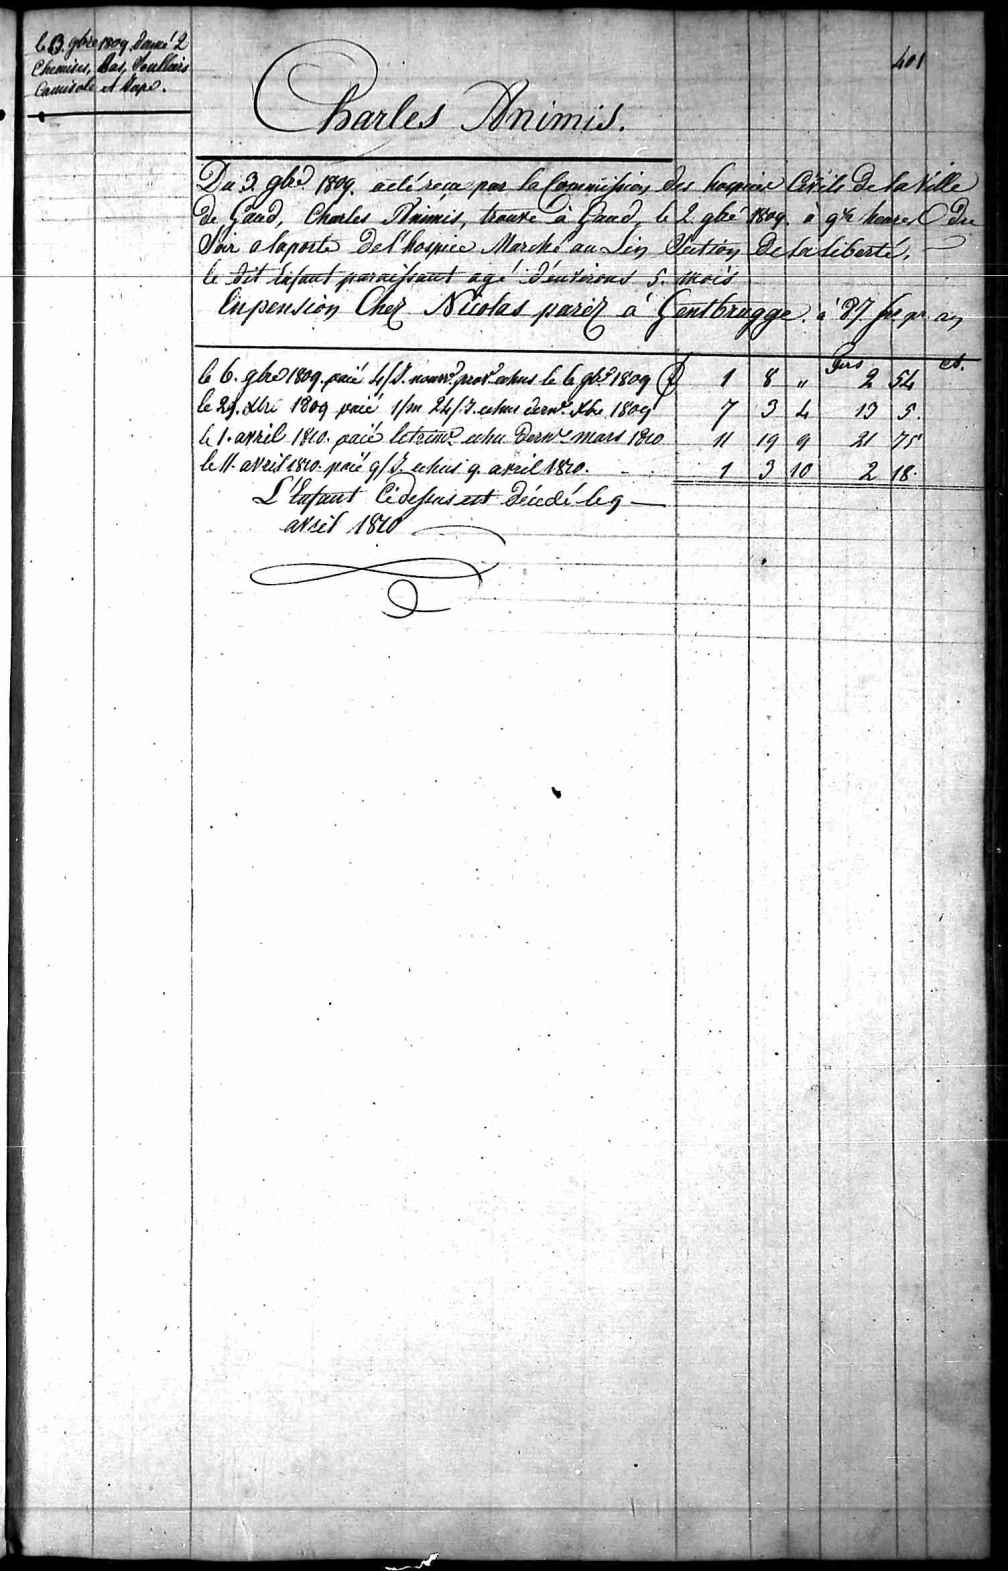 le 3. 9bre 1809 donné 2
Chemises, Bas, Soulliers
Camisole et Jupe.
401
Charles Animis.
Du 3. 9bre 1809. a été recu par la Commission des hospices Civils de la Ville
de Gand, Charles Animis, trouvé à Gand, le 2 9bre 1809. à 9 1/2 heures du
Soir a la porte de l'hospice Marché au Lin Section de la liberté,
le dit Enfant paraissant agé d'environs 5. mois
En pension Chez Nicolas parez á Gentbrugge. à 87 frs pr an
Frs ct.
le 6. 9bre 1809. paié 4/J. nourre. provre. echus le 6 9bre 1809 £ 1 8 " 2 54
le 29. Xbre 1809 paié 1/m 24/J. echus dernr. Xbre 1809 7 3 4 13 5.
le 1. avril 1810. paié le trimre. echu dernr. mars 1810 11 19 9 21 75
le 11. avril 1810. paié 9/J. echus 9. avril 1810. 1 3 10 2 18.
L'Enfant Cidessus est décedé le 9
avril 1810